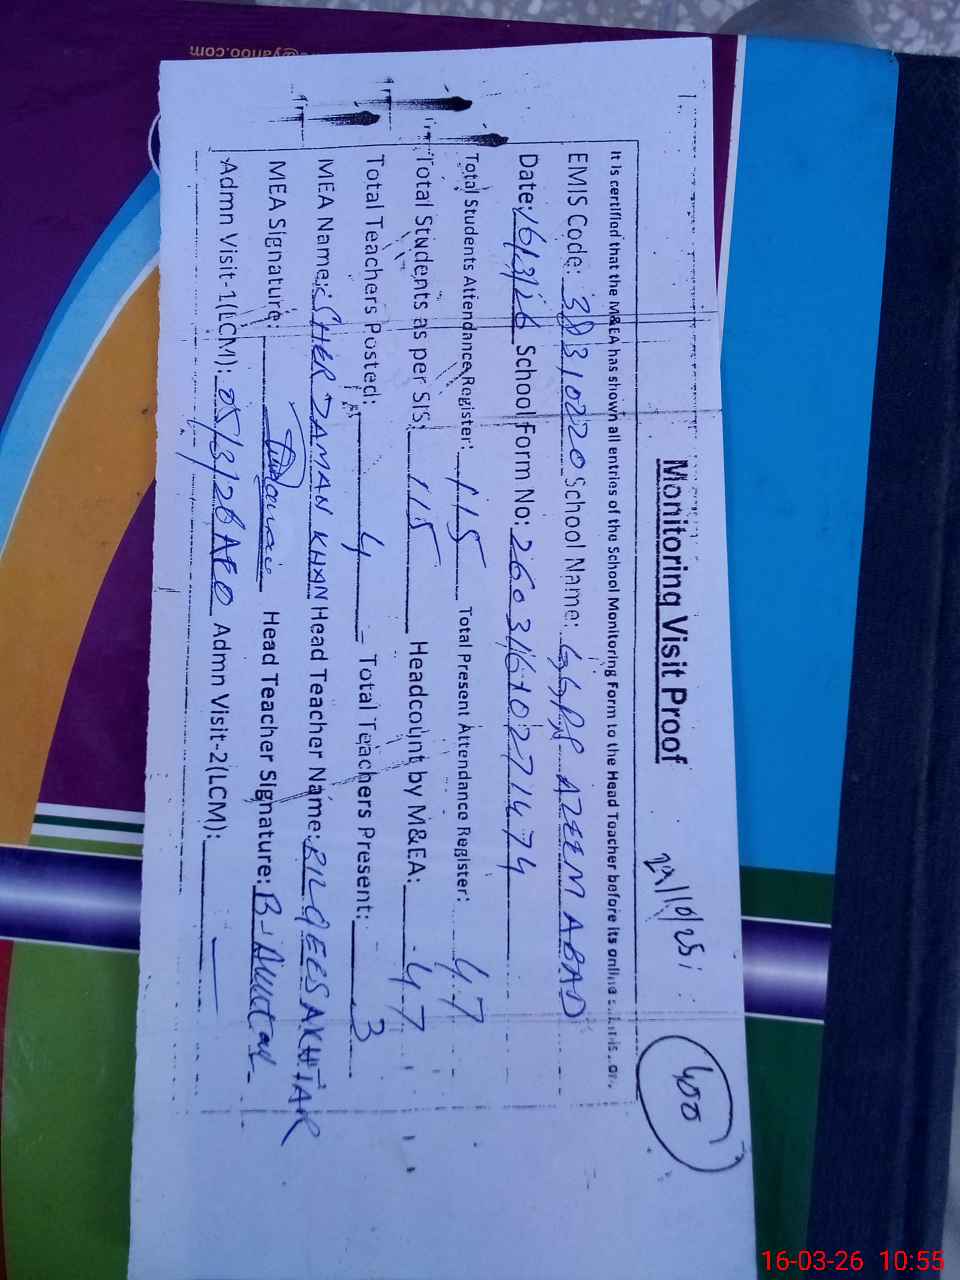 Monitoring Visit Proof
29/10/25
400
It is certified that the M&EA has shown all entries of the School Monitoring Form to the Head Teacher before its online
EMIS Code: 38310220 School Name: GGPS AZEEM ABAD
Date: 16/3/26 School Form No: 2603161027 1474
Total Students Attendance Register: 115 Total Present Attendance Register: 47
Total Students as per SIS: 115 Headcount by M&EA: 47
Total Teachers Posted: 4 Total Teachers Present: 3
MEA Name: SHER ZAMAN KHAN Head Teacher Name: BILQEES AKHTAR
MEA Signature: Head Teacher Signature: B-Akhtar
Admn Visit-1(LCM): 05/3/26 AEO Admn Visit-2(LCM): —
@yahoo.com
16-03-26 10:55